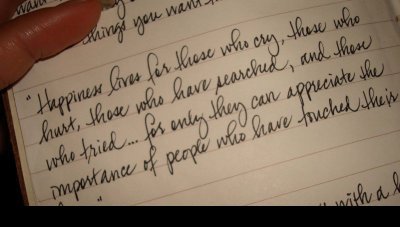 things you want t
"Happiness lives for those who cry, those who
hurt, those who have searched, and those
who tried... for only they can appreciate the
importance of people who have touched their
with a